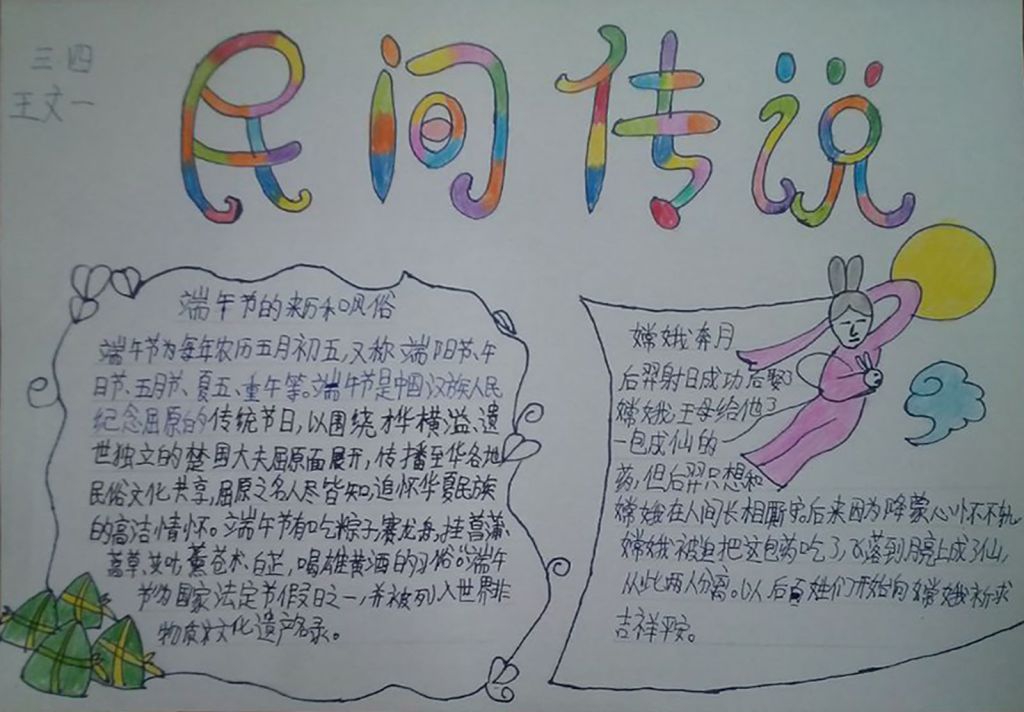 三四
王文一
民间传说
端午节的来历和风俗
端午节为每年农历五月初五,又称端阳节、午
日节、五月节、夏五、重午等。端午节是中国汉族人民
纪念屈原的传统节日,以围绕才华横溢、遗
世独立的楚国大夫屈原而展开,传播至华各地
民俗文化共享,屈原之名人尽皆知,追怀华夏民族
的高洁情怀。端午节有吃粽子,赛龙舟,挂菖蒲、
蒿草、艾叶,薰苍术、白芷,喝雄黄酒的习俗。“端午
节”为国家法定节假日之一,并被列入世界非
物质文化遗产名录。
嫦娥奔月
后羿射日成功后娶了
嫦娥,王母给他了
一包成仙的
药,但后羿只想和
嫦娥在人间长相厮守。后来因为逄蒙心怀不轨,
嫦娥被迫把这包药吃了,飞落到月亮上成了仙,
从此两人分离。以后百姓们开始向嫦娥祈求
吉祥平安。